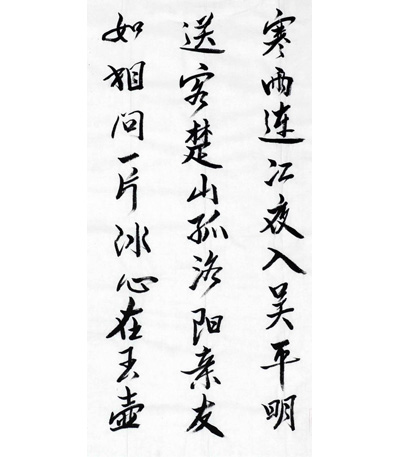 寒雨连江夜入吴平明
送客楚山孤洛阳亲友
如相问一片冰心在玉壶